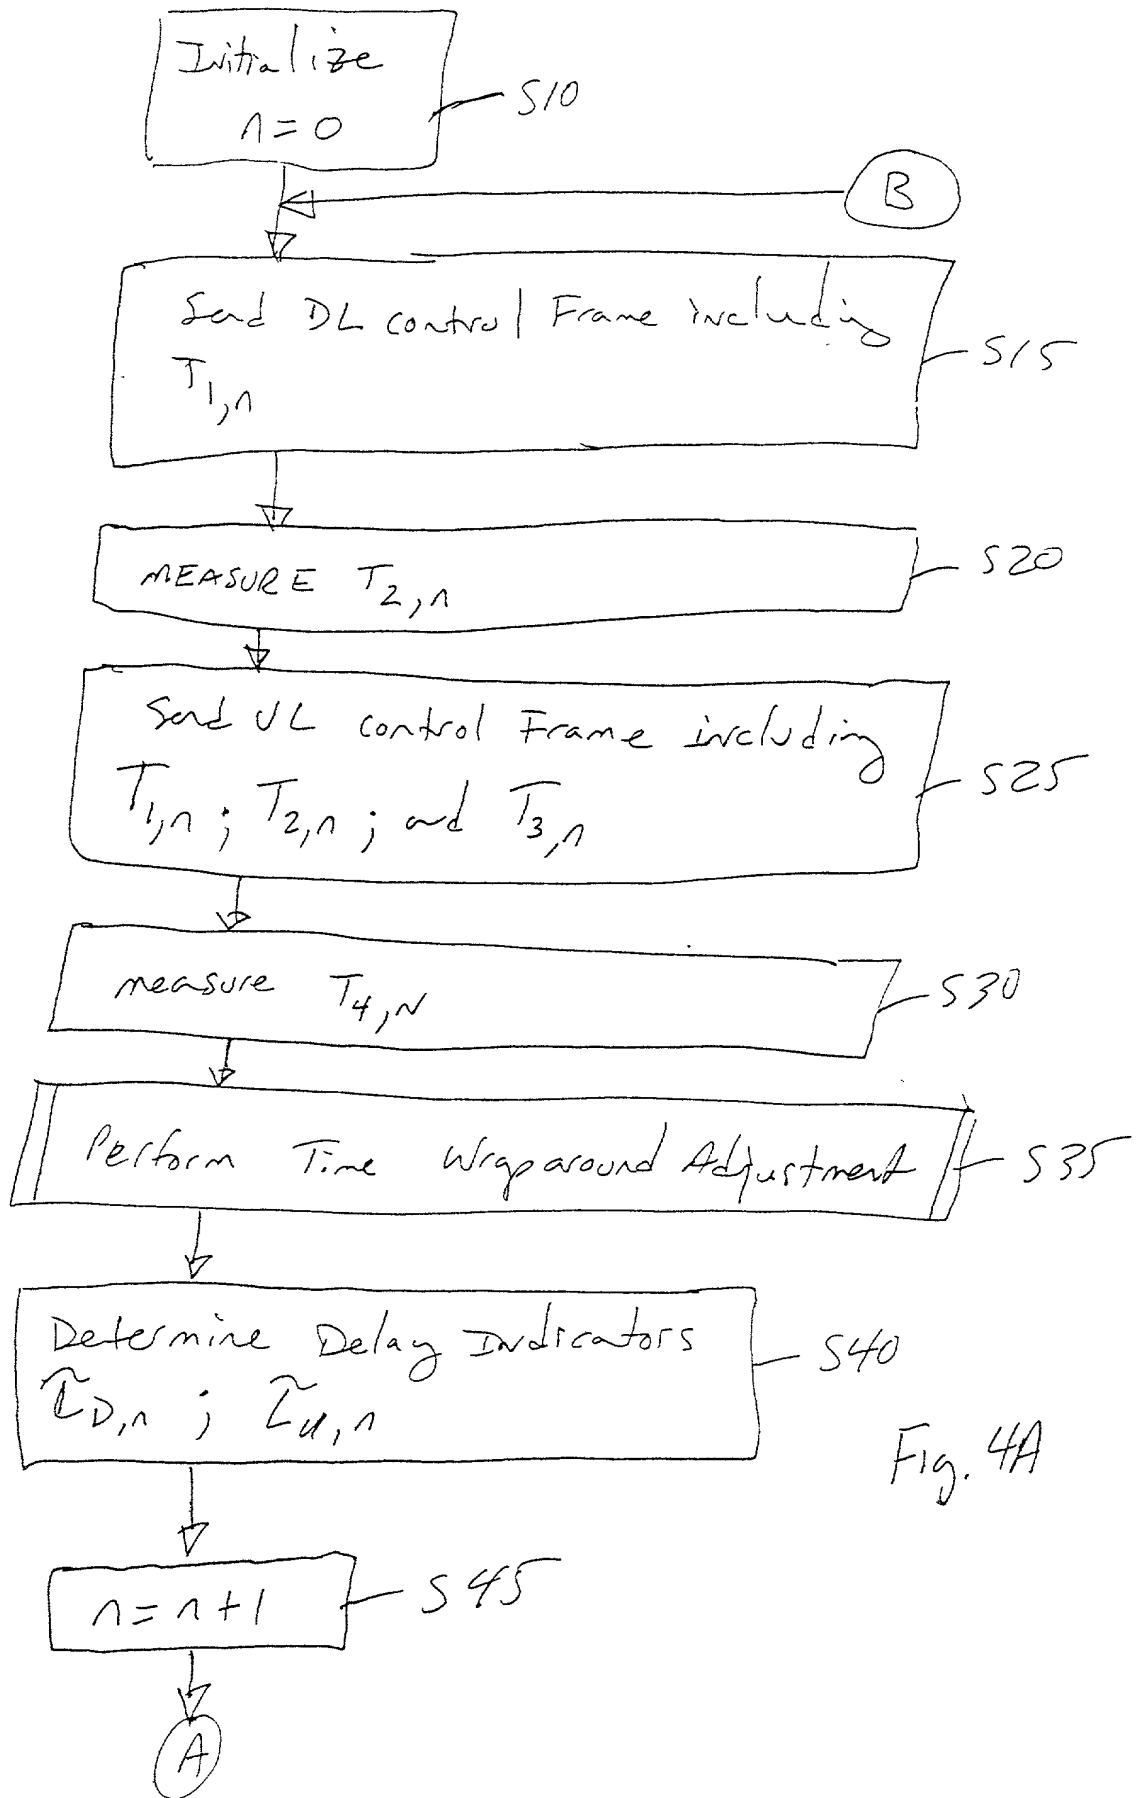 Initialize
n = 0
S10
B
Send DL control Frame including
T1,n
S15
MEASURE T2,n
S20
Send UL control Frame including
T1,n ; T2,n ; and T3,n
S25
measure T4,N
S30
Perform Time Wraparound Adjustment
S35
Determine Delay Indicators
τ̃D,n ; τ̃u,n
S40
Fig. 4A
n = n + 1
S45
A